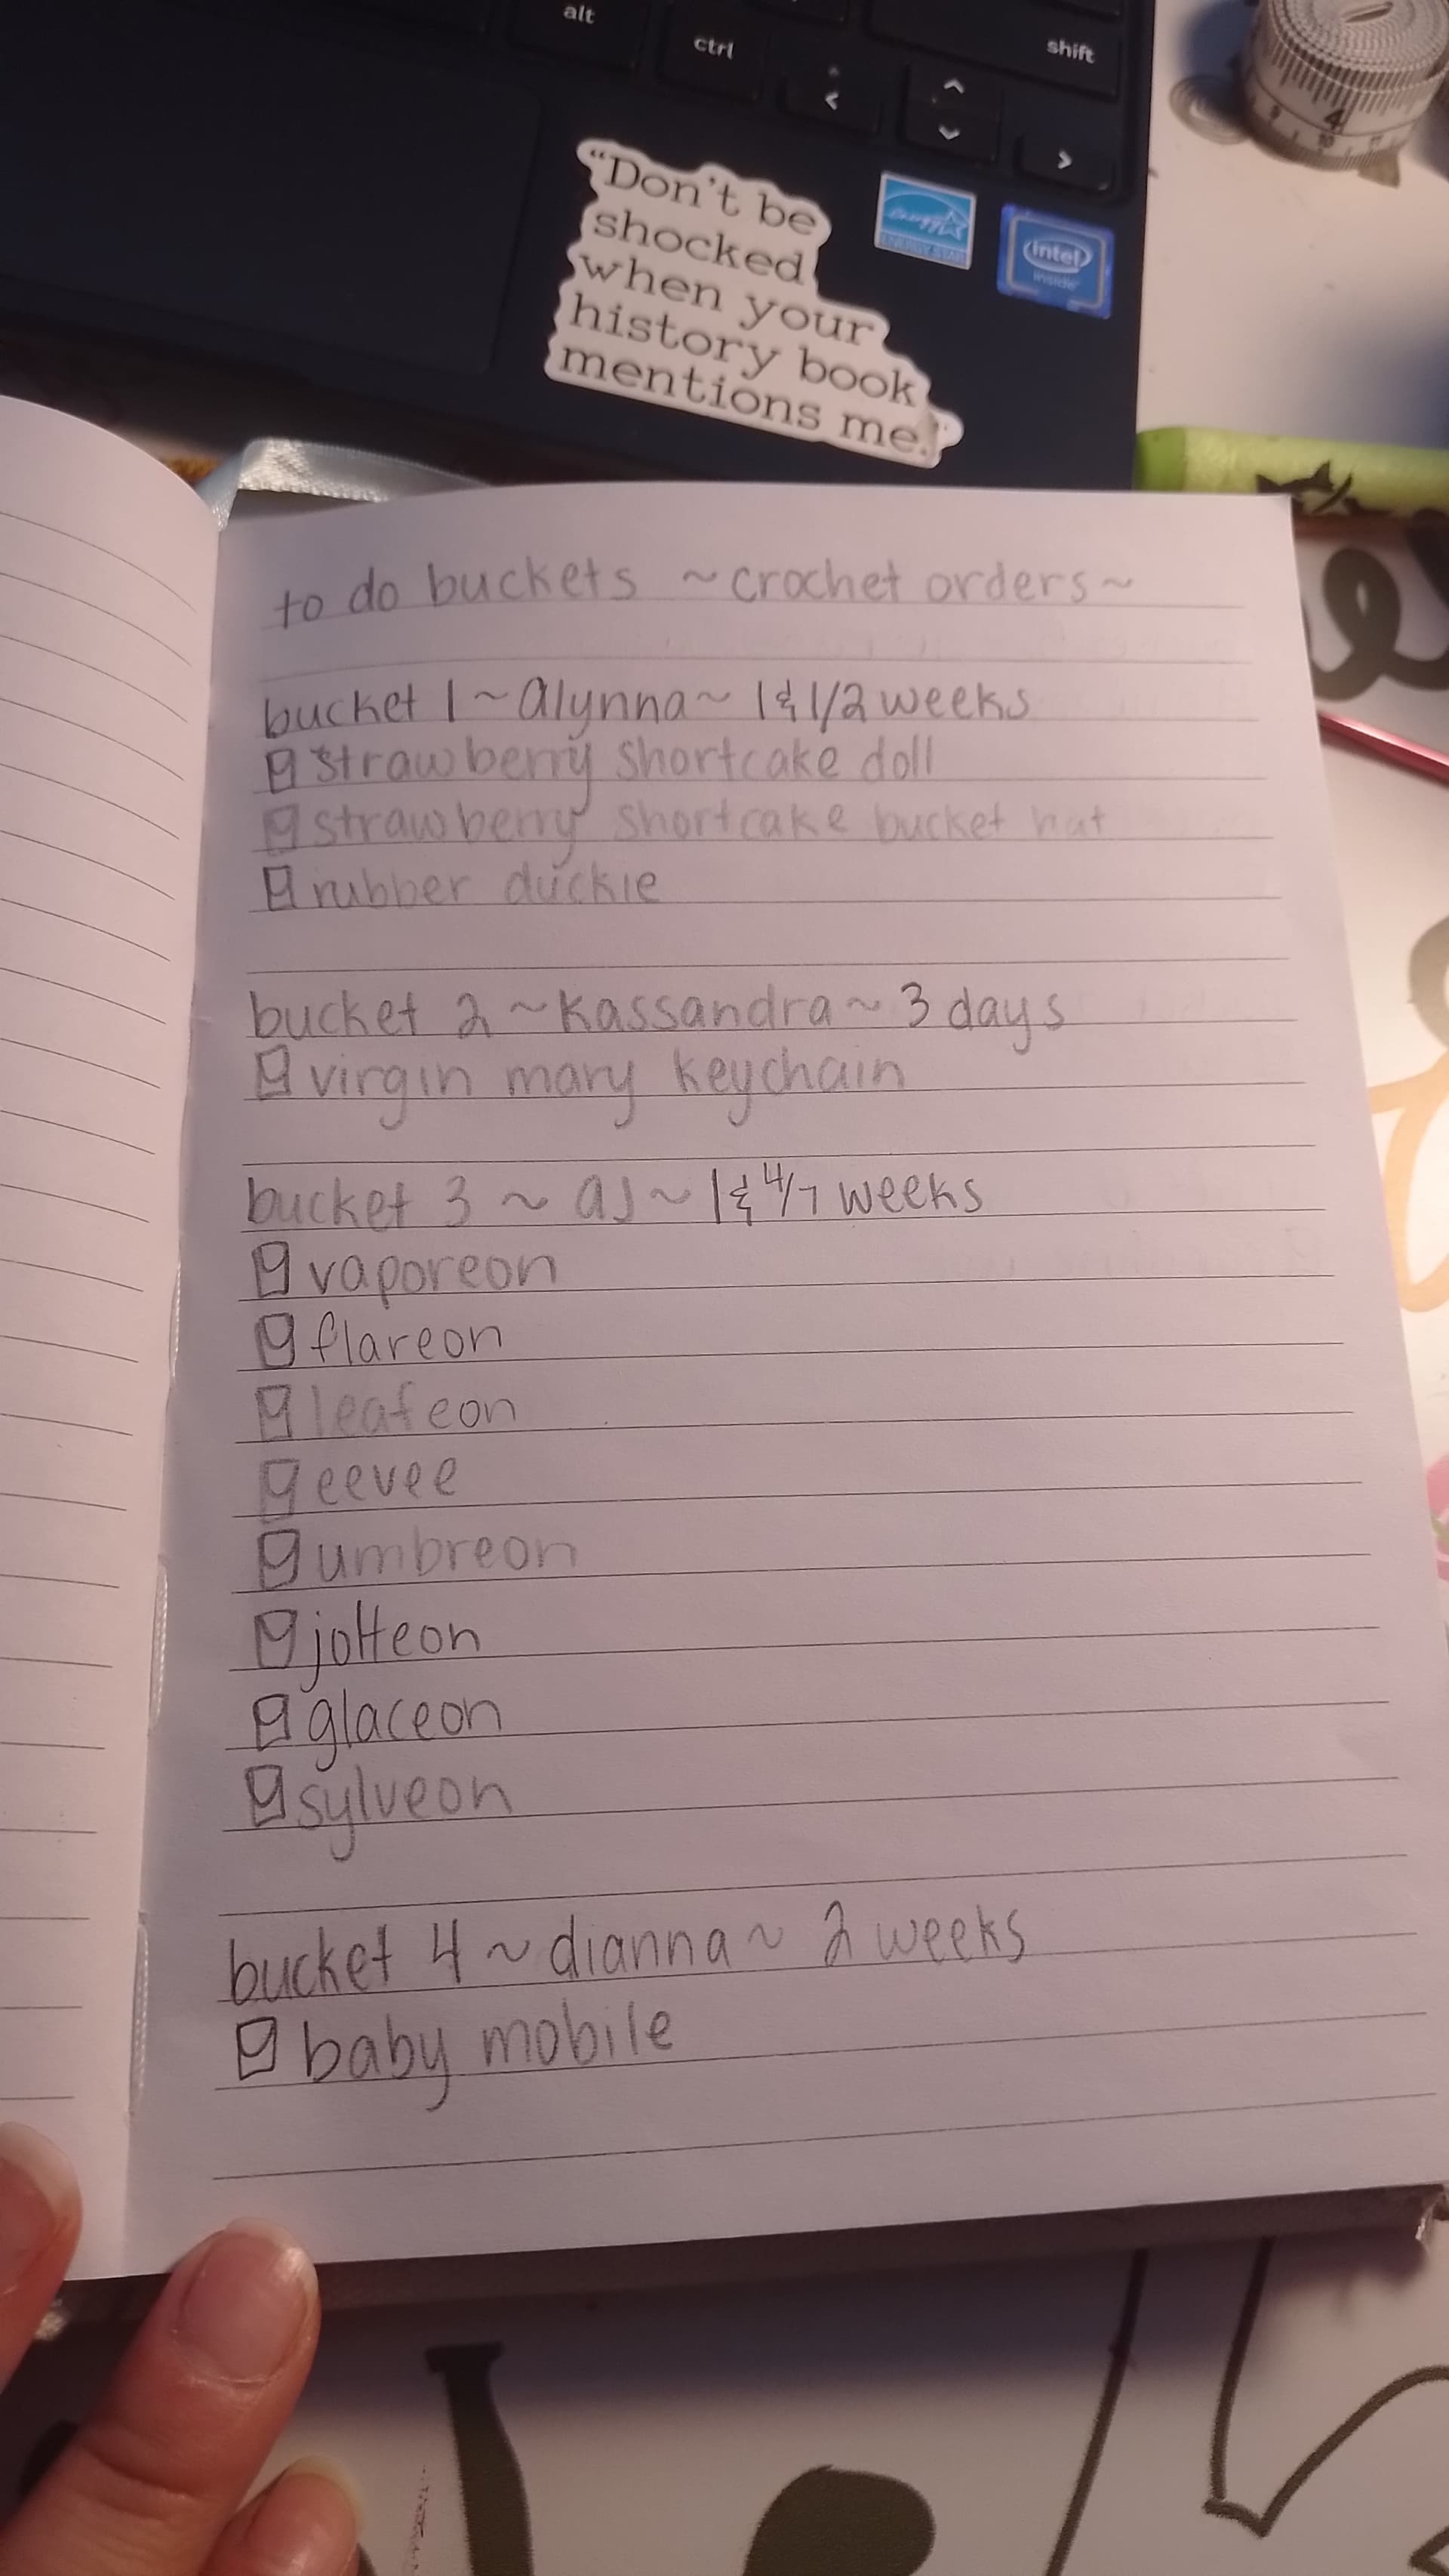 alt
ctrl
shift
<
^
v
>
"Don't be
shocked
when your
history book
mentions me."
ENERGY STAR
intel
inside
4
to do buckets ~crochet orders~
bucket 1 ~ alynna ~ 1 & 1/2 weeks
strawberry shortcake doll
strawberry shortcake bucket hat
rubber duckie
bucket 2 ~ kassandra ~ 3 days
virgin mary keychain
bucket 3 ~ aj ~ 1 & 4/7 weeks
vaporeon
flareon
leafeon
eevee
umbreon
jolteon
glaceon
sylveon
bucket 4 ~ dianna ~ 2 weeks
baby mobile